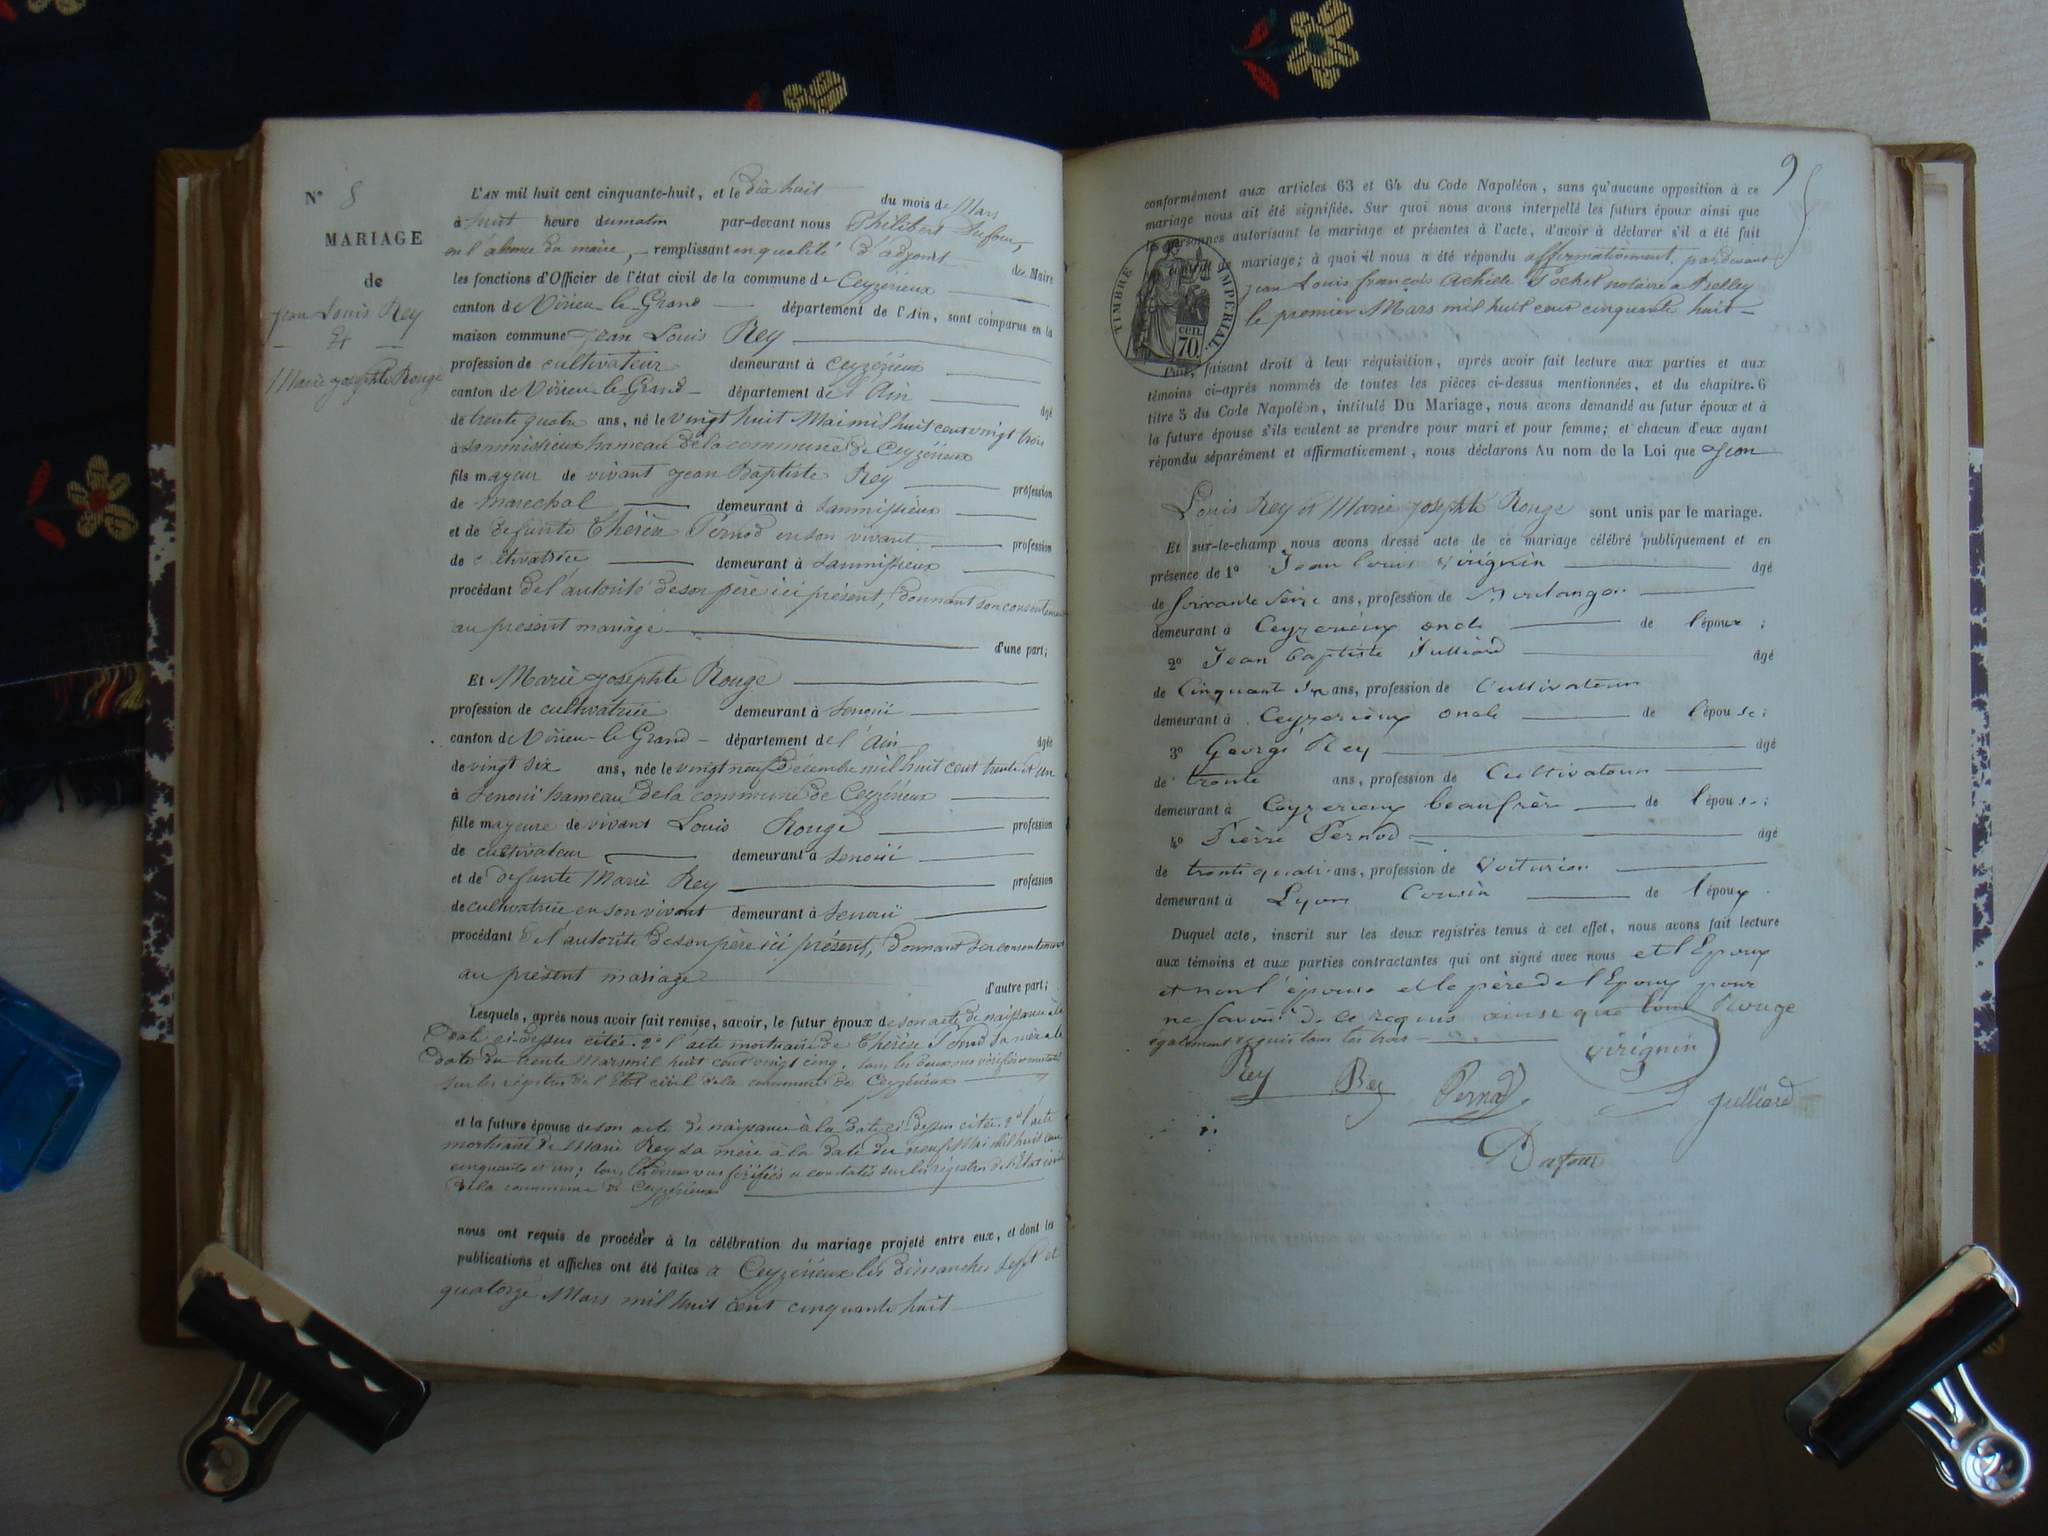 N° 8
MARIAGE
de
Jean Louis Rey
Et
Marie Josephte Rouge
L'AN mil huit cent cinquante-huit, et le dix huit du mois de Mars
à huit heure du matin par-devant nous Philibert Dufour,
en l'absence du maire, remplissant en qualité d'adjoint de Maire
les fonctions d'Officier de l'état civil de la commune de Ceyzérieux
canton de Virieu-le-Grand département de l'Ain, sont comparus en la
maison commune Jean Louis Rey
profession de cultivateur demeurant à Ceyzérieux
canton de Virieu-le-Grand département de l'Ain âgé
de trente quatre ans, né le vingt huit Mai mil huit cent vingt trois
à hameau de la commune de Ceyzérieux
fils mayeur de vivant Jean Baptiste Rey profession
de marechal demeurant à
et de defunte Thérèse Pernod en son vivant profession
de cultivatrice demeurant à
procédant de l'autorité de son père ici présent, donnant son consentement
au présent mariage d'une part;
Et Marie Josephte Rouge
profession de cultivatrice demeurant à
canton de Virieu-le-Grand département de l'Ain âgée
de vingt six ans, née le vingt neuf Décembre mil huit cent trente et un
à hameau de la commune de Ceyzérieux
fille mayeure de vivant Louis Rouge profession
de cultivateur demeurant à
et de defunte Marie Rey profession
de cultivatrice en son vivant demeurant à
procédant de l'autorité de son père ici présent, donnant son consentement
au présent mariage d'autre part;
Lesquels, après nous avoir fait remise, savoir, le futur époux de son acte de naissance à la
date ci-dessus citée. 2° l'acte mortuaire de Thérèse Pernod sa mère à la
date du trente Mars mil huit cent vingt cinq. tous les deux vus vérifiés et constatés
sur les registres de l'Etat civil de la commune de Ceyzérieux
et la future épouse de son acte de naissance à la date ci-dessus citée. 2° l'acte
mortuaire de Marie Rey sa mère à la date du neuf Mai mil huit cent
cinquante et un; tous les deux vus vérifiés et constatés sur les registres de l'Etat civil
de la commune de Ceyzérieux
nous ont requis de procéder à la célébration du mariage projeté entre eux, et dont les
publications et affiches ont été faites à Ceyzérieux les dimanches sept et
quatorze Mars mil huit cent cinquante huit
9
conformément aux articles 63 et 64 du Code Napoléon, sans qu'aucune opposition à ce
mariage nous ait été signifiée. Sur quoi nous avons interpellé les futurs époux ainsi que
les personnes autorisant le mariage et présentes à l'acte, d'avoir à déclarer s'il a été fait
mariage; à quoi il nous a été répondu affirmativement pardevant
Jean Louis françois Achille Pochet notaire à Belley
le premier Mars mil huit cent cinquante huit
TIMBRE IMPERIAL
cen. 70.
Puis, faisant droit à leur réquisition, après avoir fait lecture aux parties et aux
témoins ci-après nommés de toutes les pièces ci-dessus mentionnées, et du chapitre 6
titre 5 du Code Napoléon, intitulé Du Mariage, nous avons demandé au futur époux et à
la future épouse s'ils veulent se prendre pour mari et pour femme; et chacun d'eux ayant
répondu séparément et affirmativement, nous déclarons Au nom de la Loi que Jean
Louis Rey et Marie Josephte Rouge sont unis par le mariage.
Et sur-le-champ nous avons dressé acte de ce mariage célébré publiquement et en
présence de 1° Jean Louis Virignin âgé
de Soixante Seize ans, profession de Boulanger
demeurant à Ceyzerieux oncle de l'époux;
2° Jean Baptiste Julliard âgé
de Cinquant ans, profession de Cultivateur
demeurant à Ceyzerieux oncle de l'épouse;
3° George Rey âgé
de trente ans, profession de Cultivateur
demeurant à Ceyzerieux beaufrère de l'épouse;
4° Pierre Pernod âgé
de trente quatre ans, profession de Voiturier
demeurant à Lyon Cousin de l'époux.
Duquel acte, inscrit sur les deux registres tenus à cet effet, nous avons fait lecture
aux témoins et aux parties contractantes qui ont signé avec nous et l'Epoux
et non l'épouse et le père de l'Epoux pour
ne savoir de ce requis ainsi que Louis Rouge
également requis tous les trois
Rey Rey Pernod Virignin
Julliard
Dufour